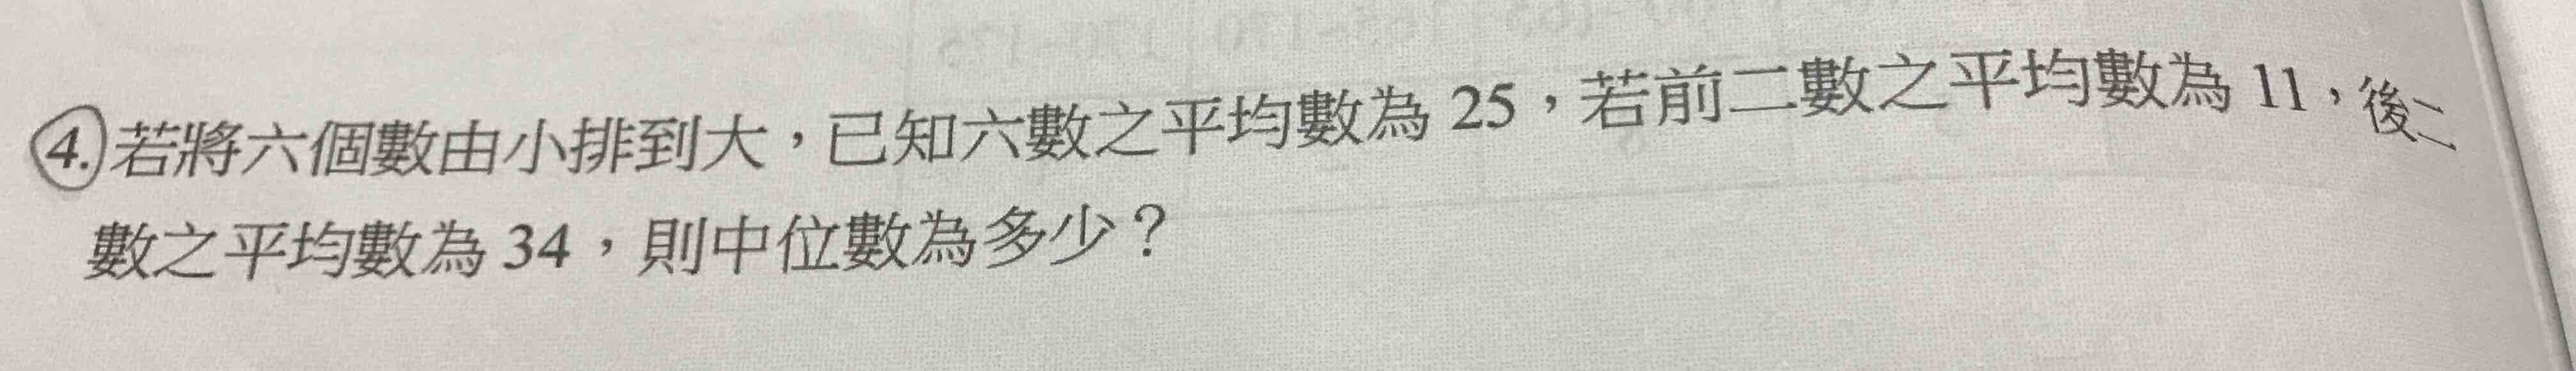 4.若將六個數由小排到大，已知六數之平均數為 25，若前二數之平均數為 11，後二
數之平均數為 34，則中位數為多少？